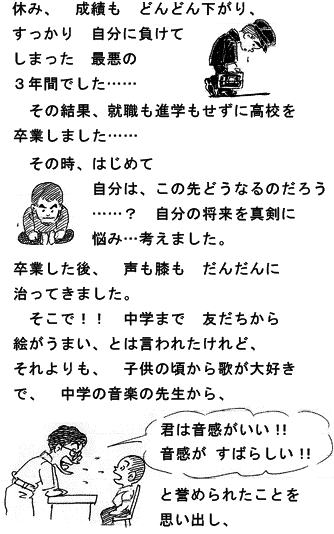 休み、　成績も　どんどん下がり、
すっかり　自分に負けて
しまった　最悪の
３年間でした……
その結果、就職も進学もせずに高校を
卒業しました……
その時、はじめて
自分は、この先どうなるのだろう
……？　自分の将来を真剣に
悩み…考えました。
卒業した後、　声も膝も　だんだんに
治ってきました。
そこで！！　中学まで　友だちから
絵がうまい、とは言われたけれど、
それよりも、　子供の頃から歌が大好き
で、　中学の音楽の先生から、
君は音感がいい!!
音感が　すばらしい!!
と誉められたことを
思い出し、